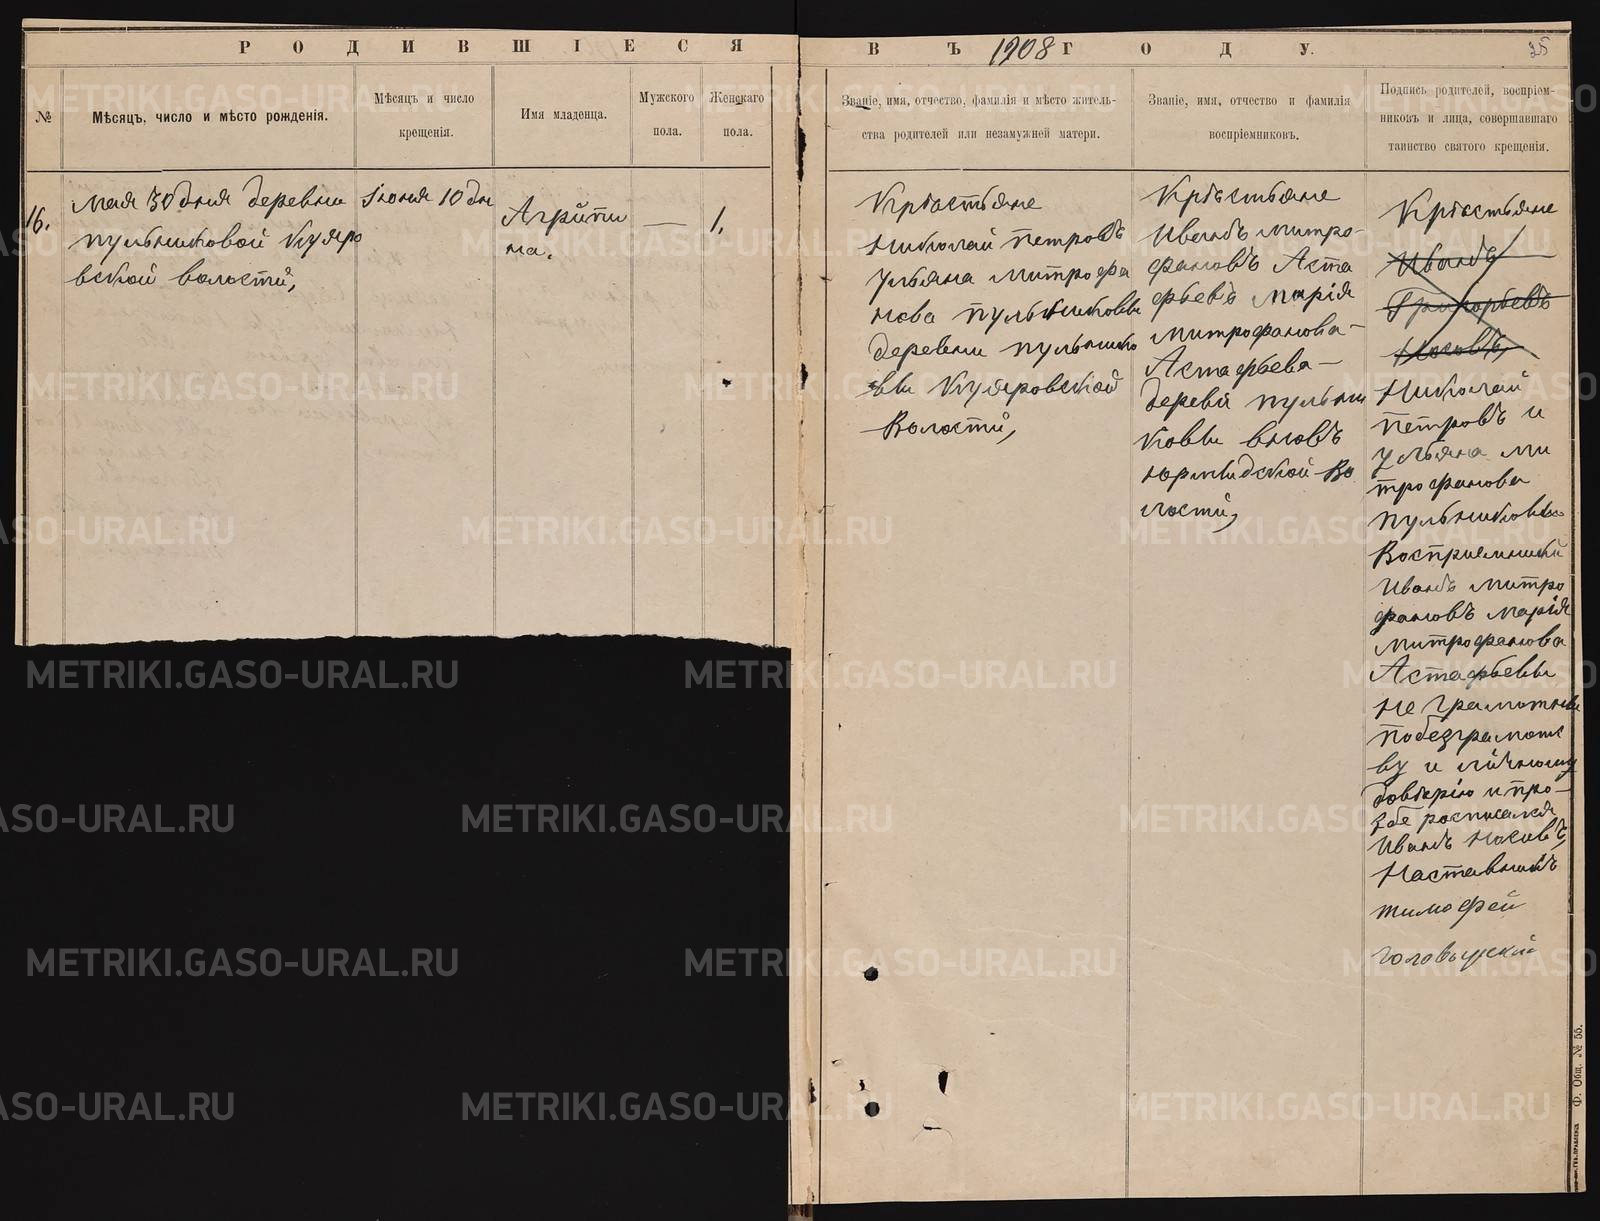 РОДИВШІЕСЯ
ВЪ 1908 ГОДУ.
35
№
Мѣсяцъ, число и мѣсто рожденія.
Мѣсяцъ и число
крещенія.
Имя младенца.
Мужского
пола.
Женскаго
пола.
Званіе, имя, отчество, фамилія и мѣсто житель-
ства родителей или незамужней матери.
Званіе, имя, отчество и фамилія
воспріемниковъ.
Подпись родителей, воспріем-
никовъ и лица, совершавшаго
таинство святого крещенія.
16.
мая 30 дня деревни
пульниковой Кузяро
вской волости,
Іюня 10 дн
Агрипи
на.
—
1.
Крѣстьяне
Николай петровъ
Ульяна митрофа
нова пульниковы
деревни пульнико
вы Кузяровской
Волости,
Крѣстьяне
Иванъ митро-
фановъ Аста
фьевъ марія
митрофанова-
Астафьева-
деревни пульни
ковы вновъ
юрмыдской Во
лости,
Крѣстьяне
Иванъ
Григорьевъ
Носовъ,
Николай
петровъ и
Ульяна ми
трофанова
пульниковы
Восприемники
Иванъ митро
фановъ марія
митрофанова
Астафьевы
не грамотны
по безграмотс
ву и личному
довѣрію и про-
збе росписался
Иванъ Носовъ,
Наставникъ
тимофей
Ф. Общ. № 55.
METRIKI.GASO-URAL.RU